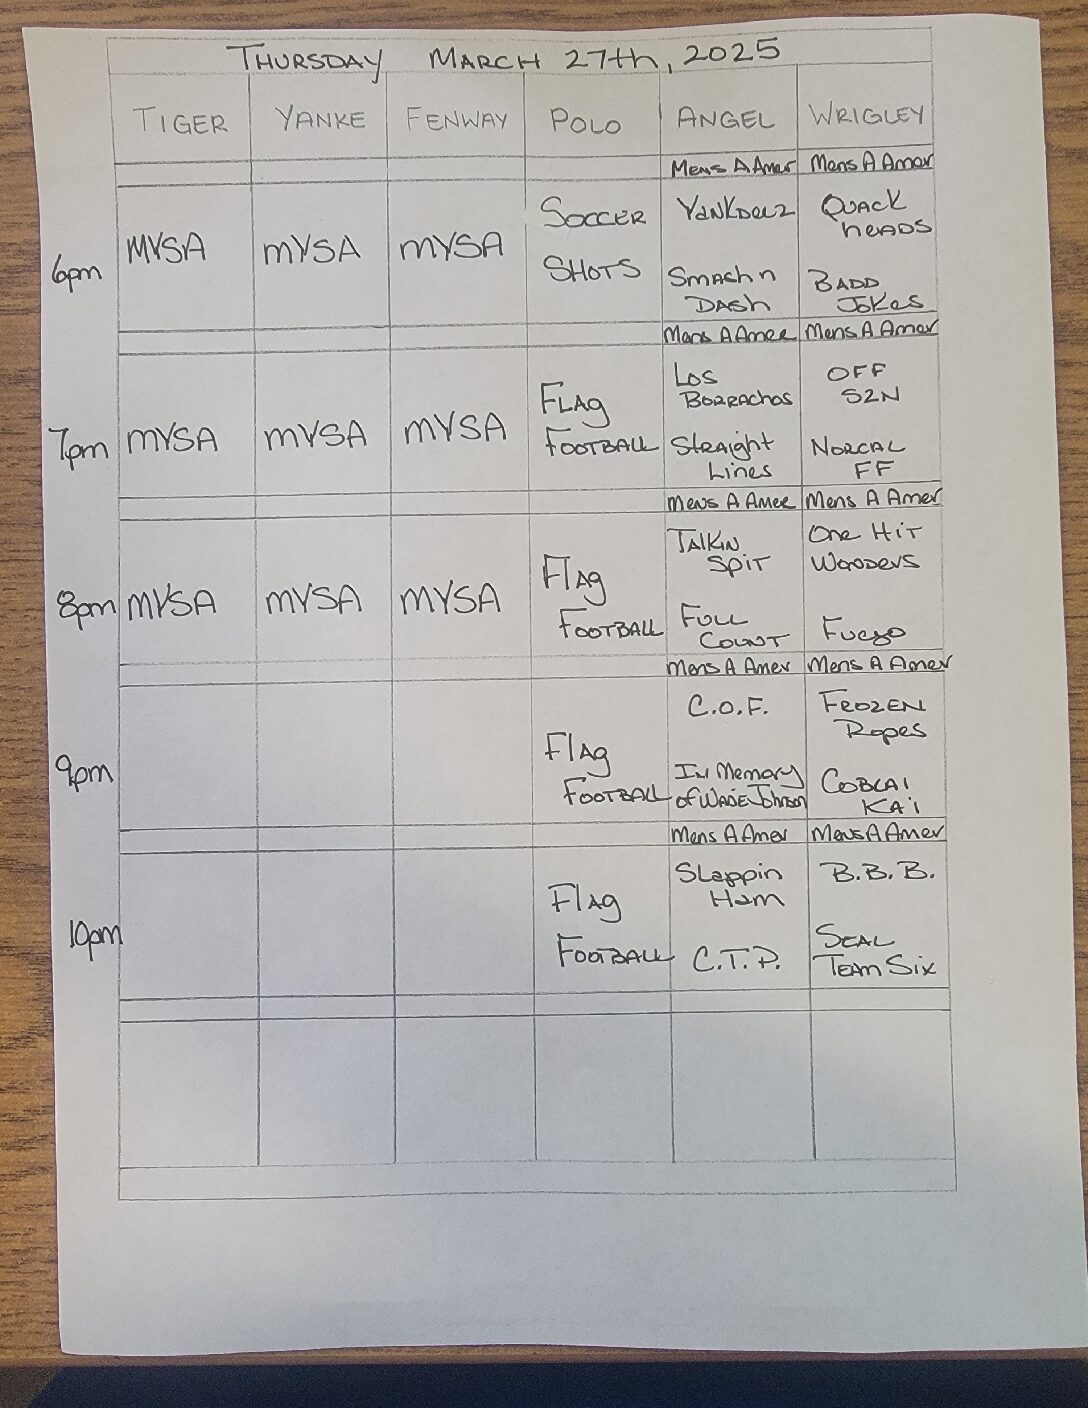 THURSDAY MARCH 27th, 2025
TIGER YANKE FENWAY POLO ANGEL WRIGLEY
Mens A Amer Mens A Amer
6pm MYSA MYSA MYSA SOCCER SHOTS YANKDEEZ QUACK HEADS
SMASH N DASH BADD JOKES
Mens A Amer Mens A Amer
7pm MYSA MYSA MYSA FLAG FOOTBALL LOS BORRACHOS OFF SZN
Straight Lines NORCAL FF
Mens A Amer Mens A Amer
8pm MYSA MYSA MYSA FLAG FOOTBALL TALKIN SPIT One HIT WOODERS
FULL COUNT FUEGO
Mens A Amer Mens A Amer
9pm FLAG FOOTBALL C.O.F. FROZEN Ropes
IN Memory of WADE Johnson COBLAI KA'I
Mens A Amer Mens A Amer
10pm FLAG FOOTBALL SLappin Ham B.B.B.
C.T.P. SEAL TEAM SIX